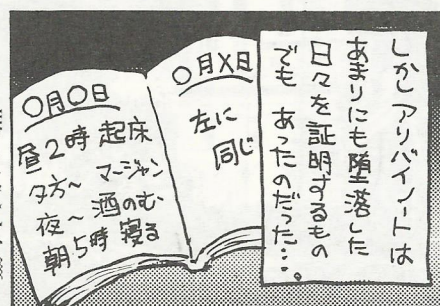 しかしアリバイノートは
あまりにも堕落した
日々を証明するもの
でもあったのだった…。
〇月〇日
昼2時 起床
夕方〜 マージャン
夜〜 酒のむ
朝5時 寝る
〇月X日
左に
同じ